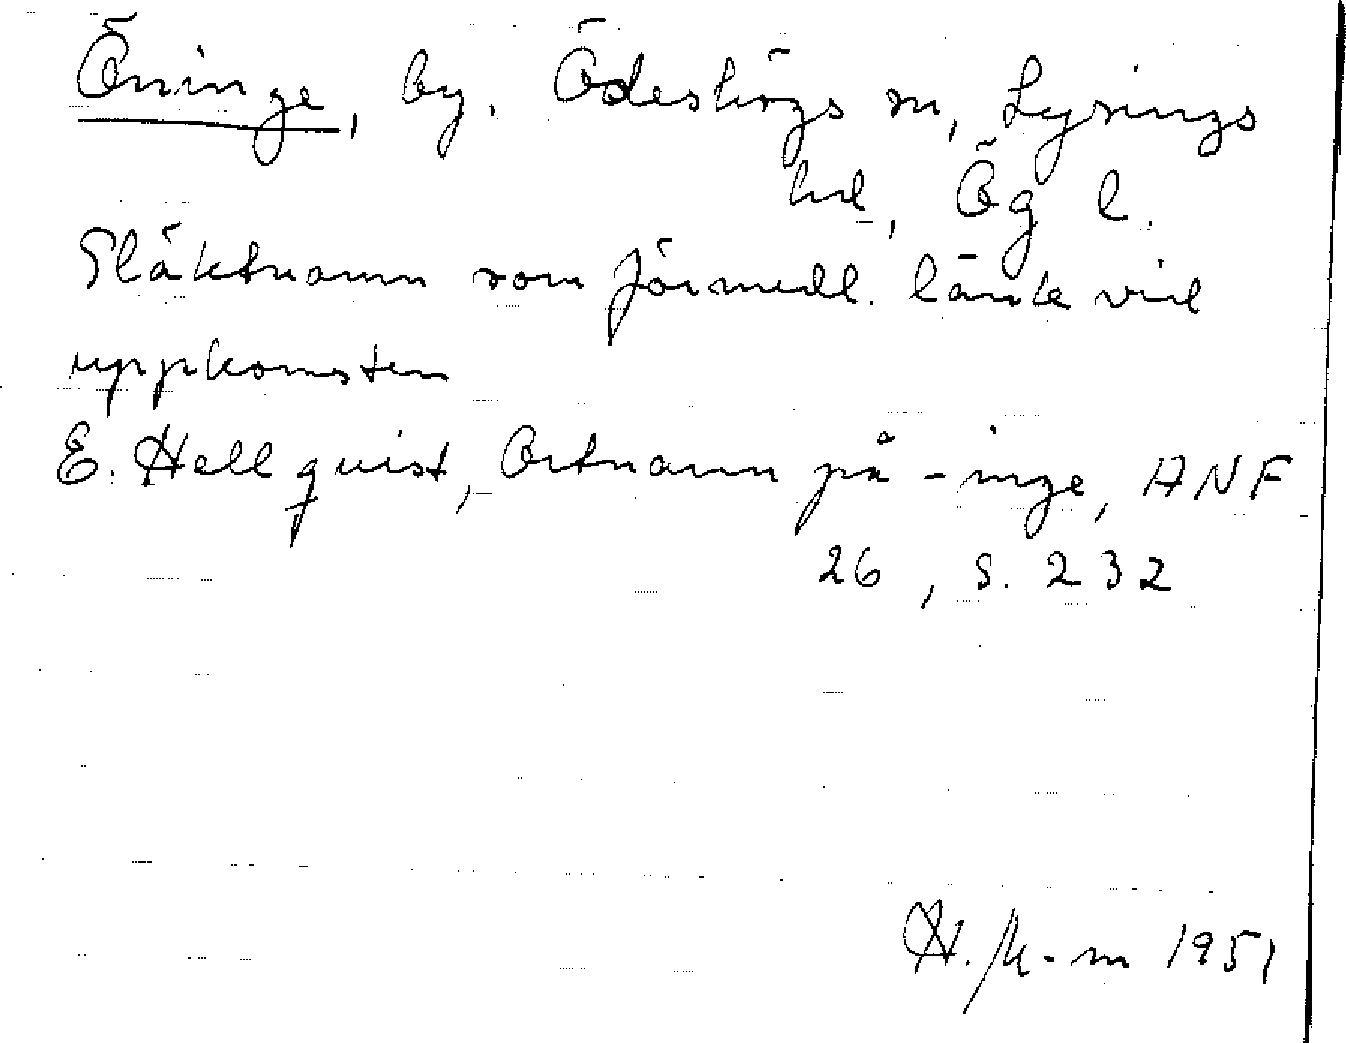 Öninge, by. Ödeshögs sn, Lysings
hd, Ög l.
Släktnamn som förmedl. länk vid
uppkomsten
E. Hellquist, Ortnamn på -inge, ANF
26, s. 232
1951